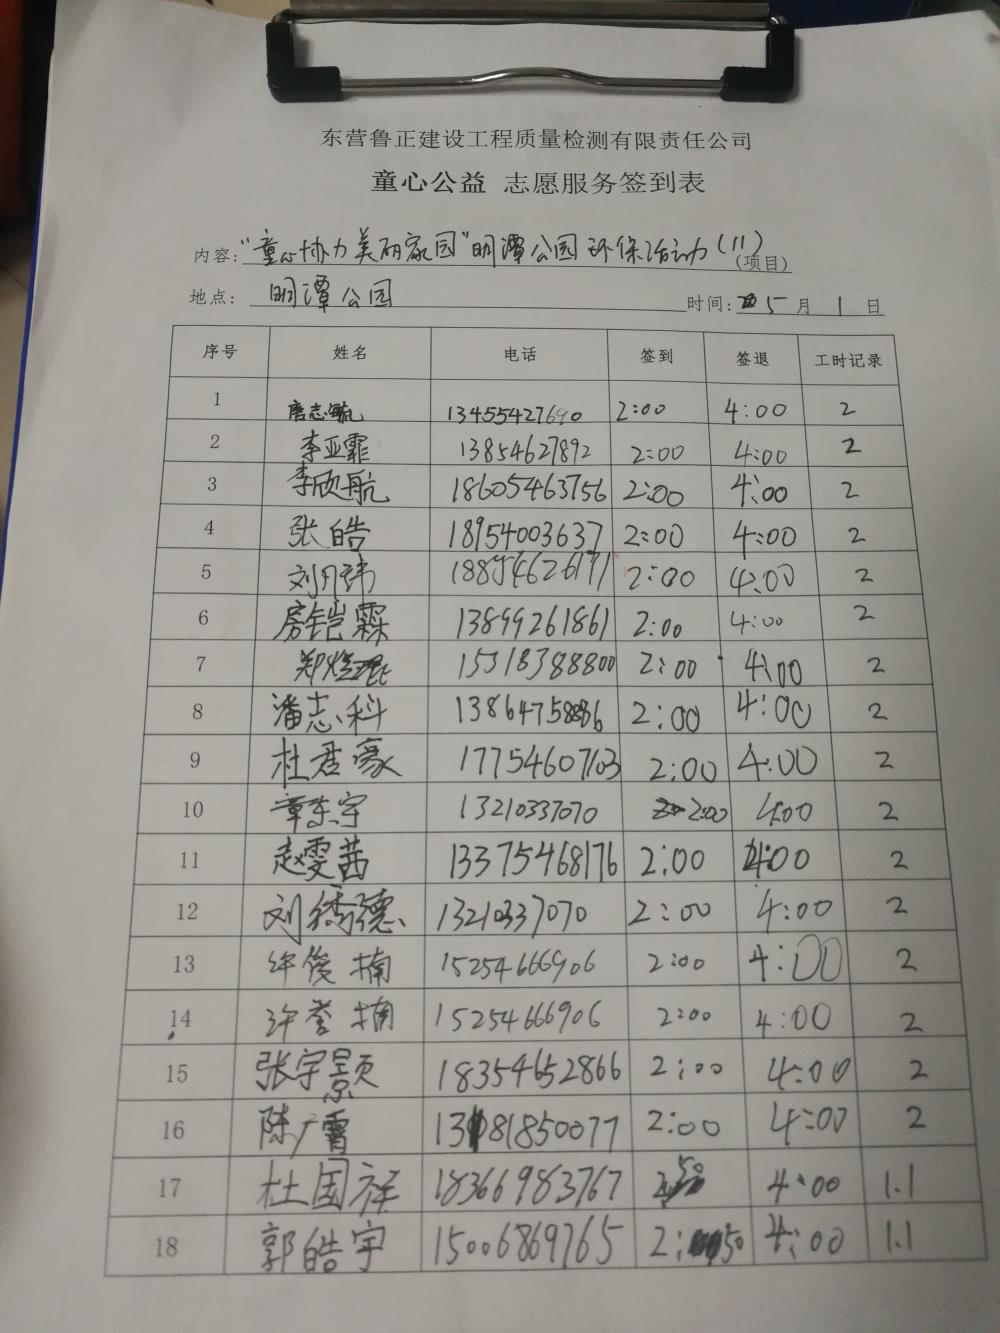 东营鲁正建设工程质量检测有限责任公司
童心公益 志愿服务签到表
内容："童心协力美丽家园"明潭公园环保活动(11)(项目)
地点：明潭公园 时间：5月1日
序号 姓名 电话 签到 签退 工时记录
1 唐志毓 13455427690 2:00 4:00 2
2 李亚霏 13854627892 2:00 4:00 2
3 李欣航 18605463756 2:00 4:00 2
4 张皓 18954003637 2:00 4:00 2
5 刘玮 18854626171 2:00 4:00 2
6 房铠霖 13899261861 2:00 4:00 2
7 郑焜 15318388800 2:00 4:00 2
8 潘志科 13864758886 2:00 4:00 2
9 杜君豪 17754607103 2:00 4:00 2
10 章东宇 13210337070 2:00 4:00 2
11 赵雯茜 13375468176 2:00 4:00 2
12 刘德 13210337070 2:00 4:00 2
13 许俊楠 15254666906 2:00 4:00 2
14 许誉楠 15254666906 2:00 4:00 2
15 张宇景 18354652866 2:00 4:00 2
16 陈广霄 13181850077 2:00 4:00 2
17 杜国祥 18366983767 2:50 4:00 1.1
18 郭皓宇 15006869765 2:50 4:00 1.1